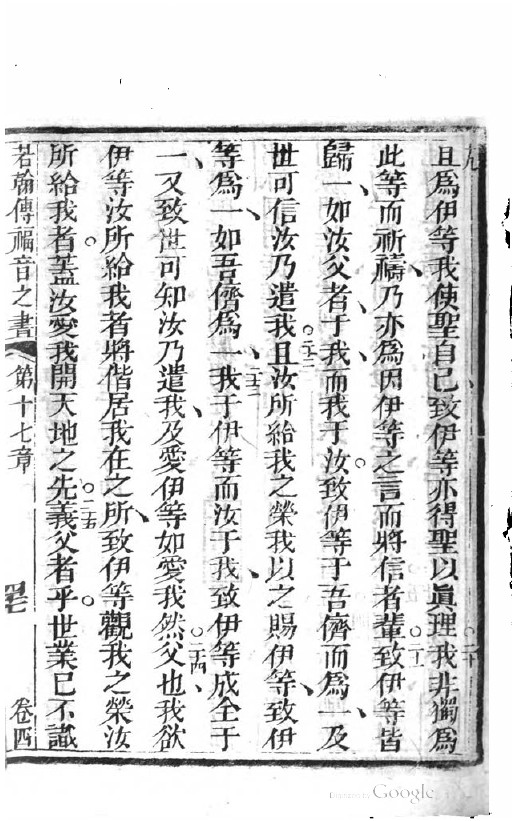 九
且為伊等我使聖自己致伊等亦得聖以眞理○二十我非獨為
此等而祈禱乃亦為因伊等之言而將信者輩○二一致伊等皆
歸一如汝父者于我而我于汝○致伊等于吾儕而為一及
世可信汝乃遣我○二二且汝所給我之榮我以之賜伊等致伊
等為一如吾儕為一○二三我于伊等而汝于我致伊等成全于
一又致世可知汝乃遣我及愛伊等如愛我然○二四父也我欲
伊等汝所給我者將偕居我在之所致伊等觀我之榮汝
所給我者○蓋汝愛我開天地之先○二五義父者乎○世業已不識
若翰傳福音之書 第十七章 四七 卷四
Digitized by Google